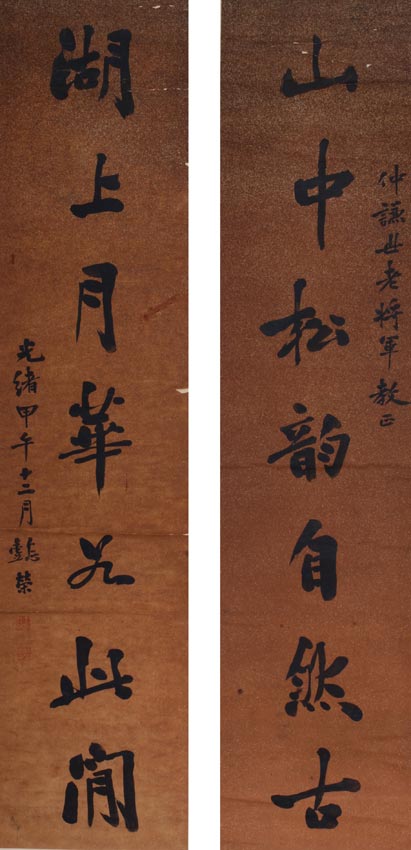 仲謙世老將軍教正
山中松韵自然古
湖上月華此閒
光緒甲午十二月懿榮